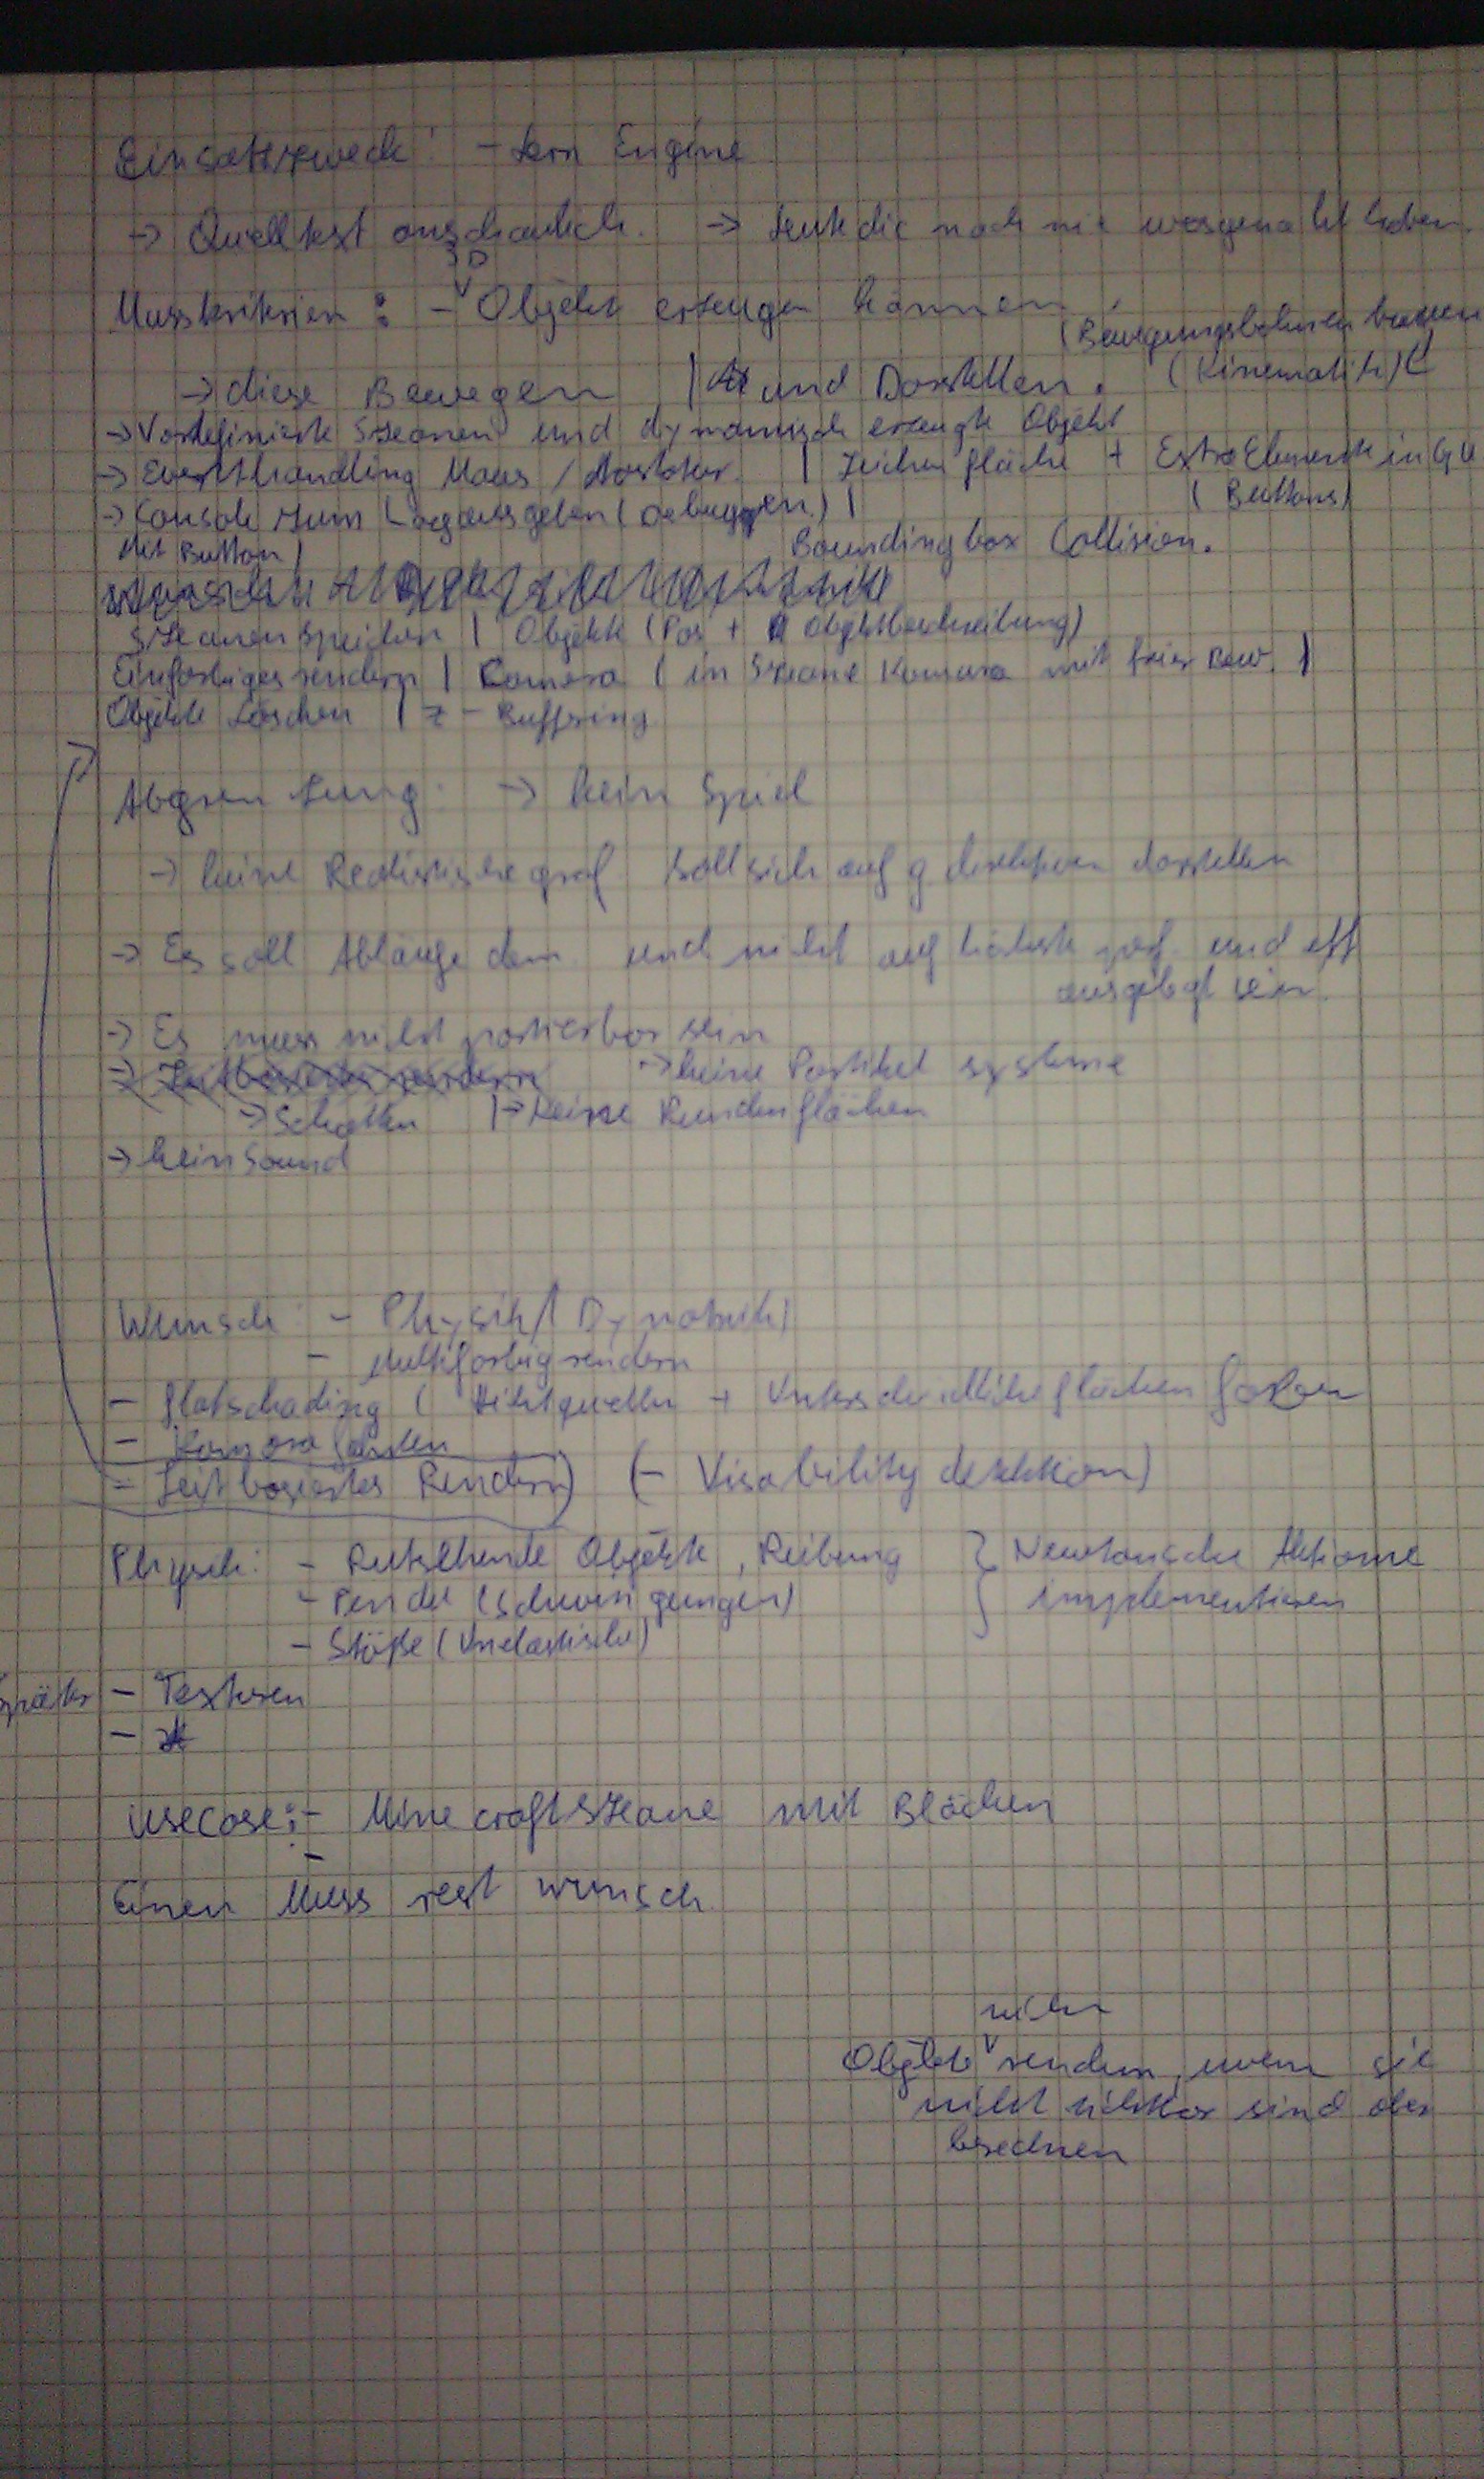 Einsatzzweck: - Lern Engine
-> Quelltext anschaulich. -> Leute die noch nie was gemacht haben.
3D
Musskriterien: - Objekte erzeugen können.
(Bewegungsbahnen bauen
-> diese Bewegen | und Darstellen. (Kinematik)
-> Vordefinierte Szeanen und dynamisch erzeugte Objekte
-> Eventhandling Maus / Tastatur. | Zeichenfläche + Extra Elemente in GU
(Buttons)
-> Console zum Logausgeben (Debuggen) |
Mit Button | Boundingbox Collision.
Szeanen speichern | Objekte (Pos + Objektbeschreibung)
Einfarbiges rendern | Camera (in Szeane Kamara mit freier Bew. |
Objekte Löschen | Z - Buffering
Abgrenzung: -> kein Spiel
-> keine Realistische graf soll sich auf darstellen
-> Es soll Abläufe dem. und nicht auf höchste perf. und eff
ausgelegt sein.
-> Es muss nicht portierbar sein
-> Zeitbasiertes rendern -> keine Partikel systeme
-> Schatten |-> Keine Runden flächen
-> kein Sound
Wunsch: - Physik (Dynamik)
- Multifarbig rendern
- flatschading (Lichtquellen + Unterschiedliche flächen farben
- Kamara fahrten
- Zeitbasiertes Rendern) (- Visability detektion)
Physik: - Rutschende Objekte, Reibung } Newtonsche Axiome
- Pendel (Schwingungen) implementieren
- Stöße (Unelastische)
später - Texturen
-
UseCase: - Minecraft Szeane mit Blöcken
-
Einen Muss rest wunsch
nicht
Objekte rendern, wenn sie
nicht sichtbar sind aber
berechnen